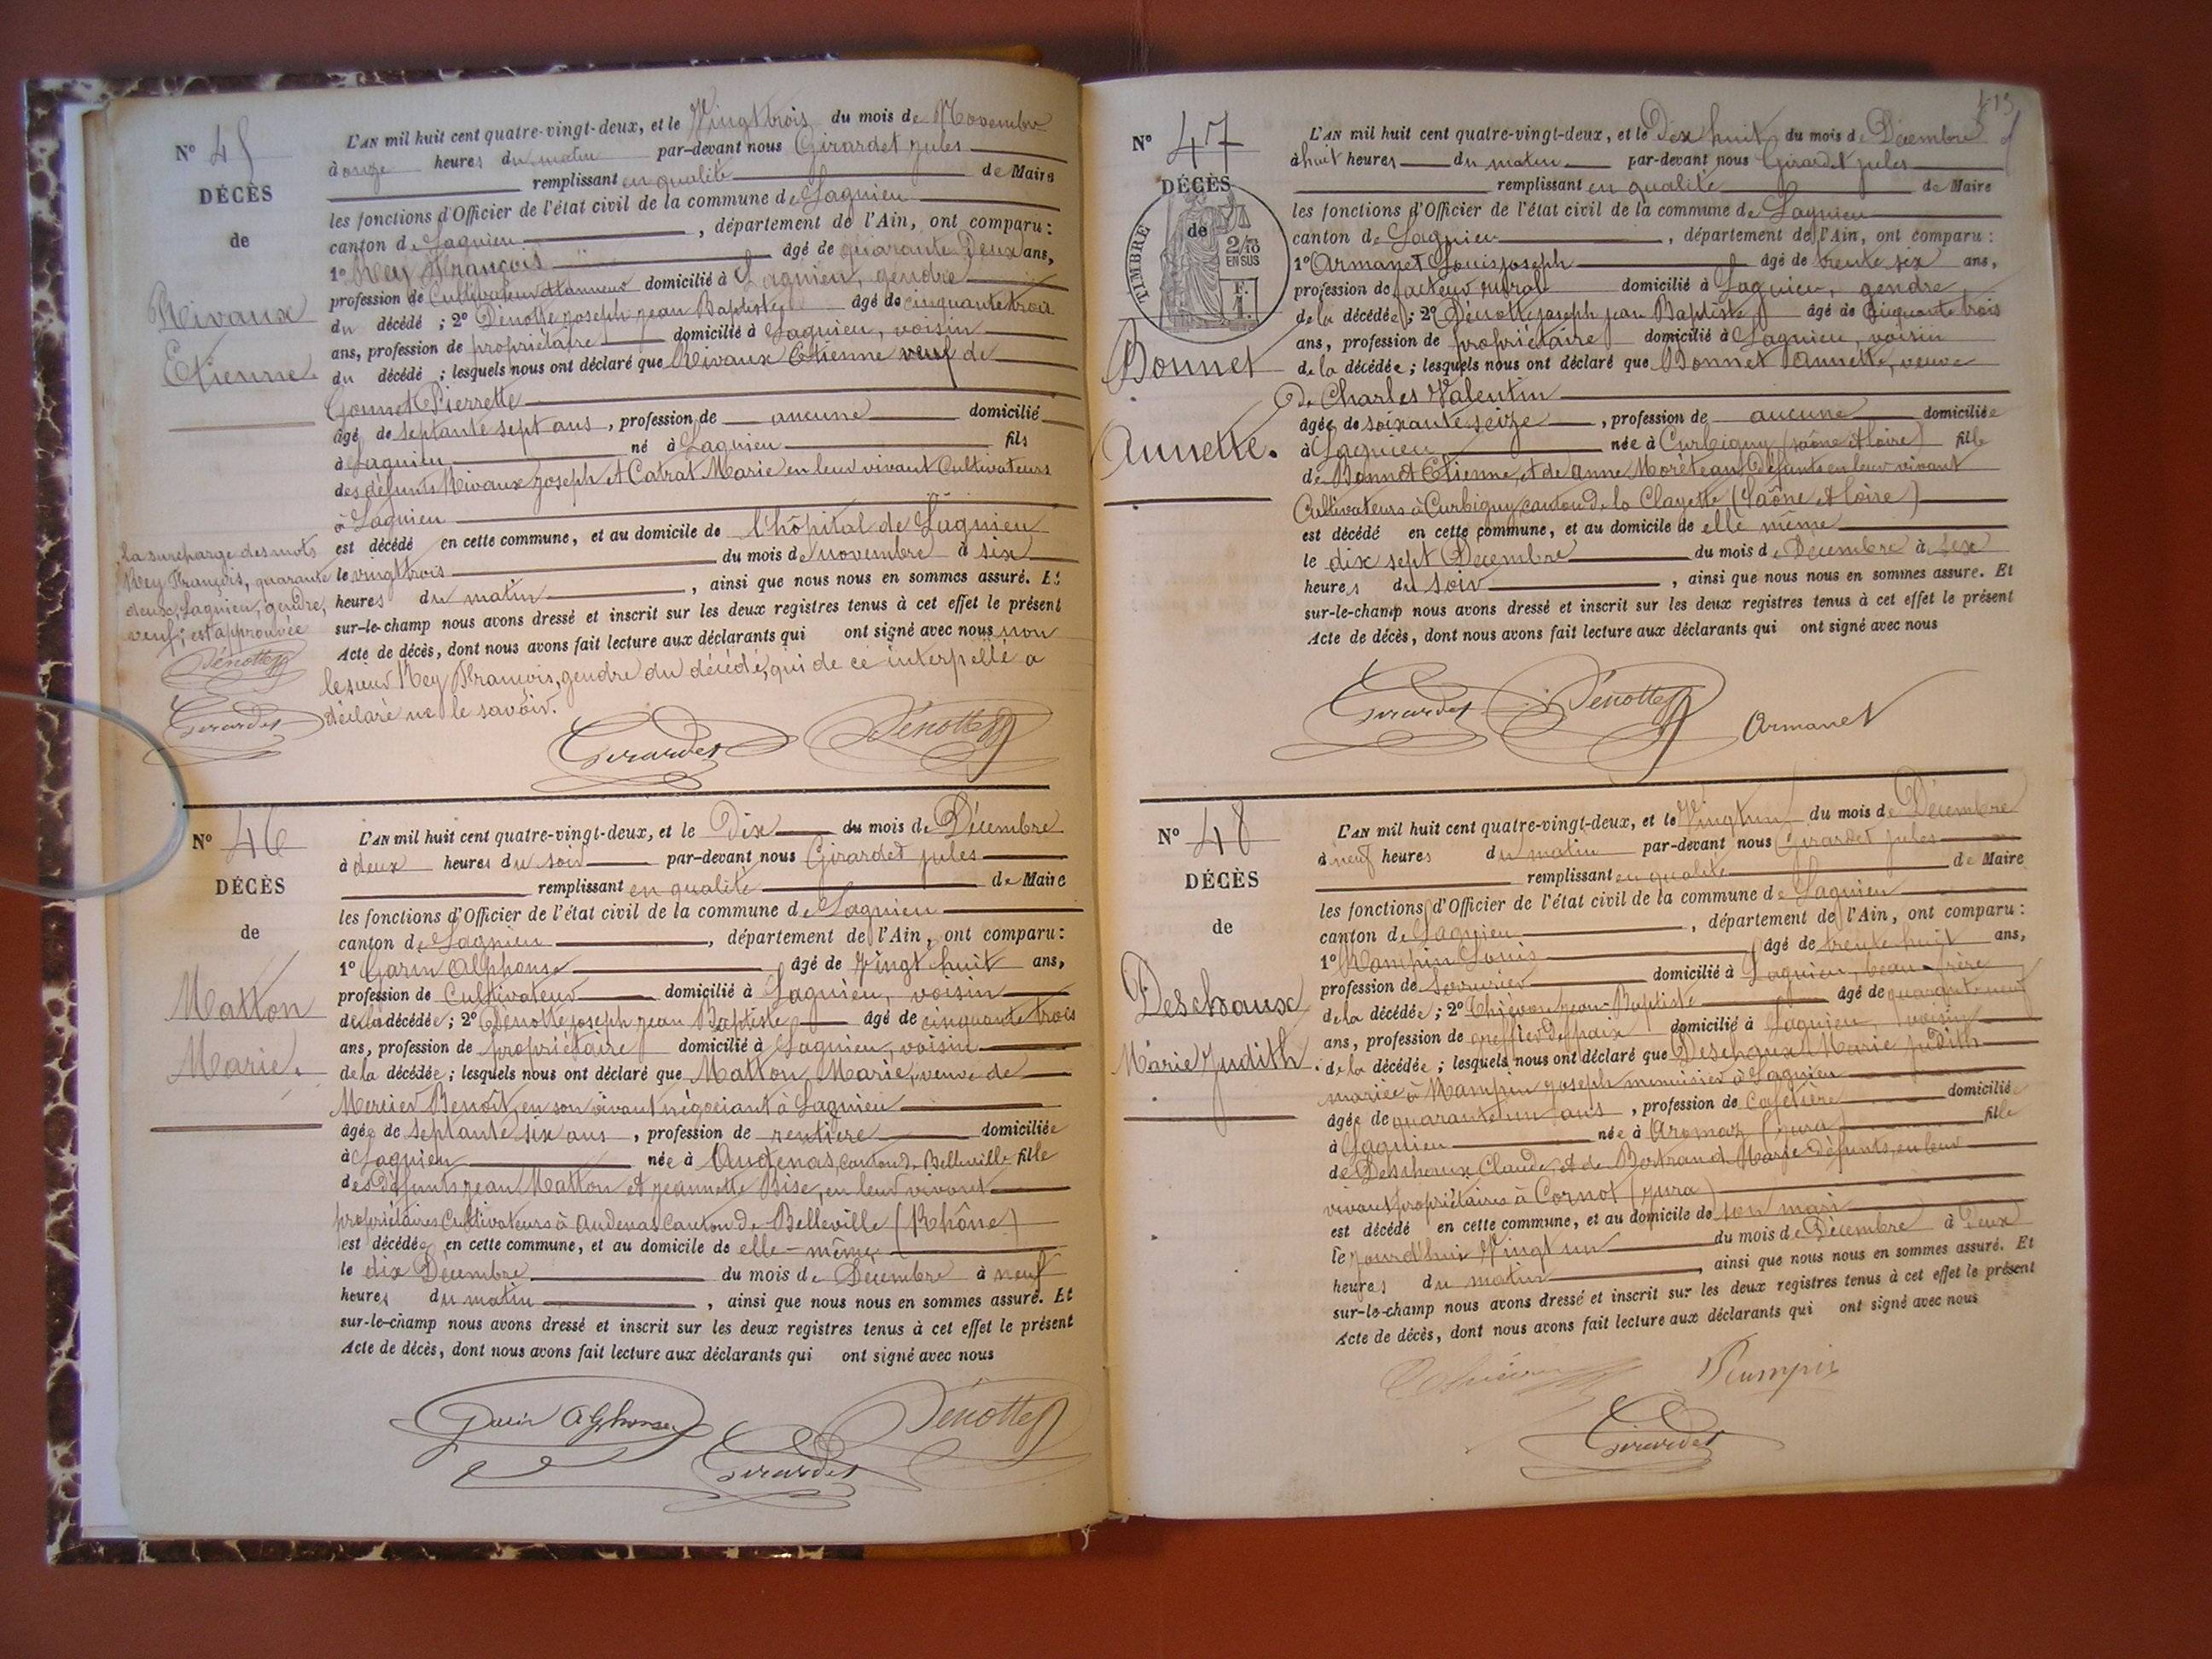 N° 45
DÉCÈS
de
Rivaux
Etienne.
L'AN mil huit cent quatre-vingt-deux, et le Vingt trois du mois de Novembre
à onze heures du matin par-devant nous Girardet Jules
remplissant en qualité de Maire
les fonctions d'Officier de l'état civil de la commune de Lagnieu
canton de Lagnieu, département de l'Ain, ont comparu :
1° Rey François âgé de quarante Deux ans,
profession de Cultivateur domicilié à Lagnieu, gendre
du décédé ; 2° Dénotte joseph jean Baptiste âgé de cinquante trois
ans, profession de propriétaire domicilié à Lagnieu, voisin
du décédé ; lesquels nous ont déclaré que Rivaux Etienne veuf de
Gonnet Pierrette
âgé de septante sept ans, profession de aucune domicilié
à Lagnieu né à Lagnieu fils
des défunts Rivaux Joseph et Catrat Marie en leur vivant Cultivateurs
à Lagnieu
est décédé en cette commune, et au domicile de l'hôpital de Lagnieu
le vingt trois du mois de novembre à six
heures du matin, ainsi que nous nous en sommes assuré. Et
sur-le-champ nous avons dressé et inscrit sur les deux registres tenus à cet effet le présent
Acte de décès, dont nous avons fait lecture aux déclarants qui ont signé avec nous non
le sieur Rey François, gendre du décédé, qui de ce interpellé a
déclaré ne le savoir.
La surcharge des mots
Rey François, quarante
deux, Lagnieu, gendre,
veuf ; est approuvée
Dénotte
Girardet
Girardet Dénotte
N° 46
DÉCÈS
de
Matton
Marie.
L'AN mil huit cent quatre-vingt-deux, et le Dix du mois de Décembre
à deux heures du soir par-devant nous Girardet Jules
remplissant en qualité de Maire
les fonctions d'Officier de l'état civil de la commune de Lagnieu
canton de Lagnieu, département de l'Ain, ont comparu :
1° Garin Alphonse âgé de Vingt huit ans,
profession de Cultivateur domicilié à Lagnieu, voisin
de la décédée ; 2° Dénotte joseph jean Baptiste âgé de cinquante trois
ans, profession de propriétaire domicilié à Lagnieu, voisin
de la décédée ; lesquels nous ont déclaré que Matton Marie, veuve de
Mercier Benoît, en son vivant négociant à Lagnieu
âgée de septante six ans, profession de rentière domiciliée
à Lagnieu née à Audenas, canton de Belleville fille
des Défunts jean Matton et jeannette Bise, en leur vivant
propriétaires Cultivateurs à Audenas Canton de Belleville (Rhône)
est décédée en cette commune, et au domicile de elle-même
le dix Décembre du mois de Décembre à neuf
heures du matin, ainsi que nous nous en sommes assuré. Et
sur-le-champ nous avons dressé et inscrit sur les deux registres tenus à cet effet le présent
Acte de décès, dont nous avons fait lecture aux déclarants qui ont signé avec nous
Garin Alphonse Girardet Dénotte
413
N° 47
DÉCÈS
de
TIMBRE
2/10
EN SUS
F.
1.
Bonnet
Annette.
L'AN mil huit cent quatre-vingt-deux, et le Dix huit du mois de Décembre
à huit heures du matin par-devant nous Girardet Jules
remplissant en qualité de Maire
les fonctions d'Officier de l'état civil de la commune de Lagnieu
canton de Lagnieu, département de l'Ain, ont comparu :
1° Armanet Louis joseph âgé de trente six ans,
profession de facteur rural domicilié à Lagnieu, gendre
de la décédée ; 2° Dénotte joseph jean Baptiste âgé de Cinquante trois
ans, profession de propriétaire domicilié à Lagnieu, voisin
de la décédée ; lesquels nous ont déclaré que Bonnet Annette, veuve
De Charles Valentin
âgée de soixante seize, profession de aucune domiciliée
à Lagnieu née à Curbigny (Saône et loire) fille
de Bonnet Etienne, et de Anne Moréteau, Défunts en leur vivant
Cultivateurs à Curbigny, canton de la Clayette (Saône et loire)
est décédé en cette commune, et au domicile de elle même
le dix sept Décembre du mois de Décembre à six
heures du soir, ainsi que nous nous en sommes assuré. Et
sur-le-champ nous avons dressé et inscrit sur les deux registres tenus à cet effet le présent
Acte de décès, dont nous avons fait lecture aux déclarants qui ont signé avec nous
Girardet Dénotte Armanet
N° 48
DÉCÈS
de
Deschaux
Marie Judith.
L'AN mil huit cent quatre-vingt-deux, et le Vingt un du mois de Décembre
à neuf heures du matin par-devant nous Girardet Jules
remplissant en qualité de Maire
les fonctions d'Officier de l'état civil de la commune de Lagnieu
canton de Lagnieu, département de l'Ain, ont comparu :
1° Rampin Louis âgé de trente huit ans,
profession de serrurier domicilié à Lagnieu, beau-frère
de la décédée ; 2° jean-Baptiste âgé de quarante neuf
ans, profession de greffier de paix domicilié à Lagnieu, voisin
de la décédée ; lesquels nous ont déclaré que Deschaux Marie judith
mariée à Rampin joseph menuisier à Lagnieu
âgée de quarante un ans, profession de Cafetière domicilié
à Lagnieu née à Aromaz (jura) fille
de Deschaux Claude, et de Bertrand Marie défunts, en leur
vivant propriétaires à Cornot (jura)
est décédé en cette commune, et au domicile de son mari
le jourd'hui Vingt un du mois de Décembre à Deux
heures du matin, ainsi que nous nous en sommes assuré. Et
sur-le-champ nous avons dressé et inscrit sur les deux registres tenus à cet effet le présent
Acte de décès, dont nous avons fait lecture aux déclarants qui ont signé avec nous
Rampin
Girardet